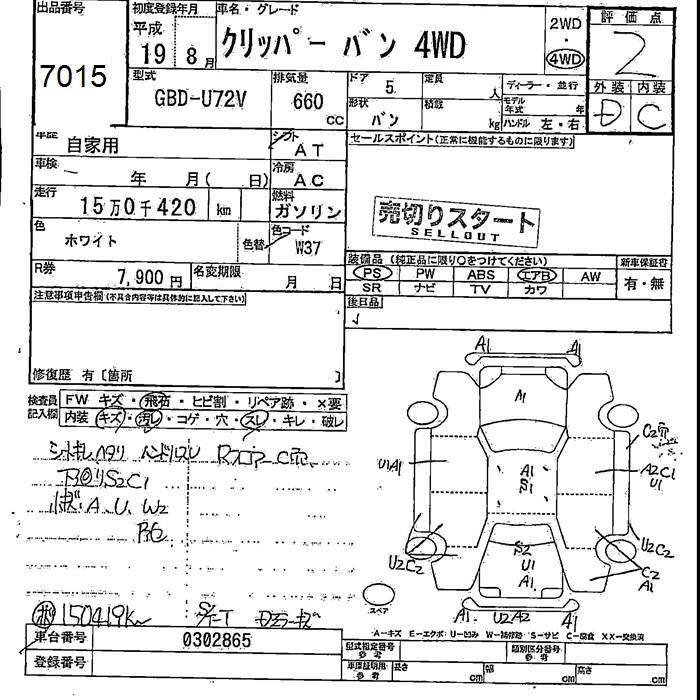 出品番号 初度登録年月 車名・グレード 評価点
平成 19 8月 クリッパー バン 4WD 2WD ・ 4WD 2
7015 型式 排気量 ドア 5 定員 人 ディーラー・並行 外装 内装
GBD-U72V 660 CC 形状 バン 積載 kg モデル年式 年 ハンドル 左・右 D C
車歴 自家用 シフト AT セールスポイント(正常に機能するものに限ります)
車検 年 月( 日) 冷房 AC
走行 15万0千420 km 燃料 ガソリン 売切りスタート
SELLOUT
色 ホワイト 色替 色コード W37
装備品(純正品に限り○をつけてください) 新車保証書
R券 7,900円 名変期限 月 日 PS PW ABS エアB AW 有・無
SR ナビ TV カワ
注意事項申告欄(不具合内容等は具体的に記入して下さい) 後日品
修復歴 有〔箇所 〕
検査員記入欄 FW キズ・飛石・ヒビ割・リペア跡・×要
内装 キズ・汚れ・コゲ・穴・スレ・キレ・破レ
A1 A1
M
C2穴
U1A1 A1 S1 A2C1 U1
下回りS2C1
A、U、W2
U2C2 S2 U1 A1 U2C2
C2 A1
スペア
A1 U2A2 A1
150419Km
A-キズ E-エクボ U-凹み W-補修跡 S-サビ C-腐食 XX-交換済
車台番号 0302865 型式指定番号 参考 類別区分番号 参考
登録番号 車庫証明用 参考 長さ cm 幅 cm 高さ cm